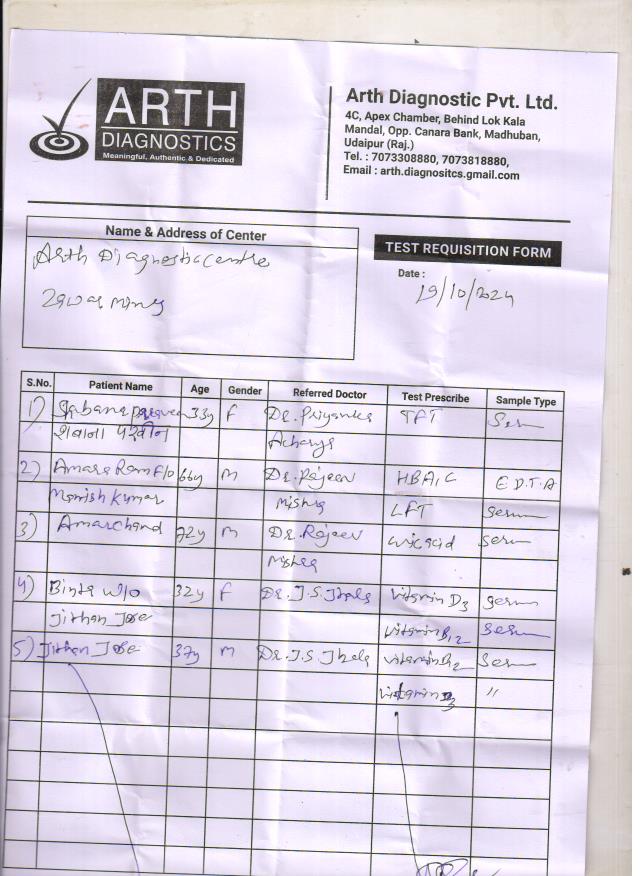 ARTH
DIAGNOSTICS
Meaningful, Authentic & Dedicated
Arth Diagnostic Pvt. Ltd.
4C, Apex Chamber, Behind Lok Kala
Mandal, Opp. Canara Bank, Madhuban,
Udaipur (Raj.)
Tel. : 7073308880, 7073818880,
Email : arth.diagnositcs.gmail.com
Name & Address of Center
Arth Diagnostic Centre
Zawar Mines
TEST REQUISITION FORM
Date :
19/10/2024
S.No. Patient Name Age Gender Referred Doctor Test Prescribe Sample Type
1) Sabana parveen 33y F Dr. Priyanka TFT Serum
शबाना परवीन Acharya
2) Amara Ram F/o 66y M Dr. Rajeev HBA1C E.D.T.A
Manish Kumar Mishra LFT Serum
3) Amarchand 72y M Dr. Rajeev uric acid Serum
Mishra
4) Binta w/o 32y F Dr. J.S. Jhala Vitamin D3 Serum
Jithan Jose Vitamin B12 Serum
5) Jithan Jose 37y M Dr. J.S Jhala Vitamin B12 Serum
Vitamin D3 "